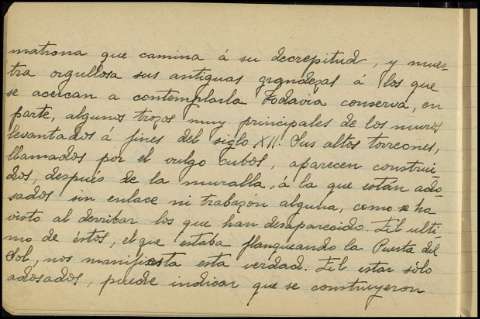 matrona que camina á su decrepitud, y mues-
tra orgullosa sus antiguas grandezas á los que
se acercan a contemplarla. Todavía conserva, en
parte, algunos trozos muy principales de los muros
levantados á fines del siglo XII. Sus altos torreones,
llamados por el vulgo Cubos, aparecen construi-
dos, después de la muralla, á la que están ado-
sados sin enlace ni trabazon alguna, como se ha
visto al derribar los que han desaparecido. El ulti-
mo de éstos, el que estaba flanqueando la Puerta del
Sol, nos manifiesta esta verdad. El estar sólo
adosados, puede indicar que se construyeron